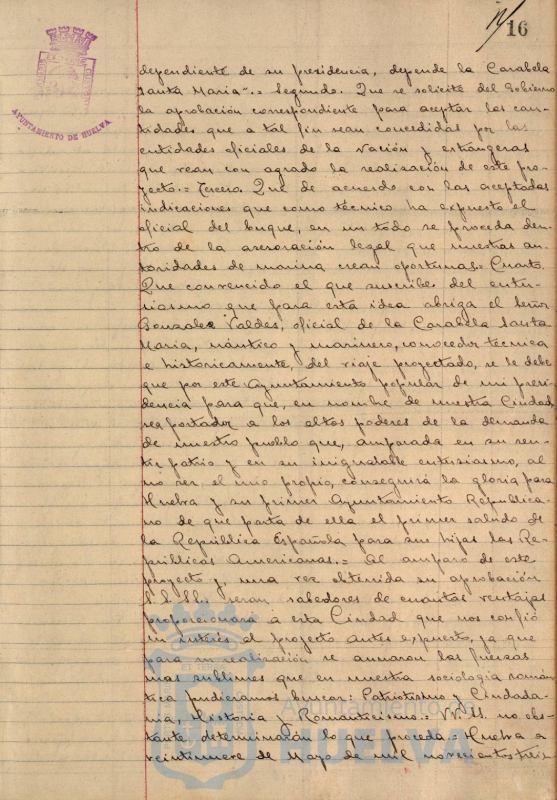 14/ 16
AYUNTAMIENTO DE HUELVA
dependiente de su presidencia, depende la Carabela
Santa Maria".= Segundo. Que se solicite del Gobierno
la aprobación correspondiente para aceptar las can-
tidades que a tál fin sean concedidas por las
entidades oficiales de la Nación y extrangeras
que vean con agrado la realización de este pro-
yecto.= Tercero. Que de acuerdo con las aceptadas
indicaciones que como técnico ha expuesto el
oficial del buque, en un todo se proceda den-
tro de la asesoración legal que nuestras au-
toridades de marina crean oportunas.= Cuarto.
Que convencido el que suscribe del entu-
siasmo que para esta idea abriga el Señor
Gonzalez Valdes, oficial de la Carabela Santa
Maria, náutico y marinero, conocedor técnica
e históricamente, del viaje proyectado, se le debe
que por este Ayuntamiento popular de mi presi-
dencia para que, en nombre de nuestra Ciudad
sea portador a los altos poderes de la demanda
de nuestro pueblo que, amparada en su sen-
tir patrio y en su inigualable entusiasmo, al
no ser el mio propio, conseguirá la gloria para
Huelva y su primer Ayuntamiento Republica-
no de que parta de ella el primer saludo de
la República Española para sus hijas las Re-
públicas Americanas.= Al amparo de este
proyecto y, una vez obtenida su aprobación
S.S.S.S. seran sabedores de cuantas ventajas
proporcionará a esta Ciudad que nos confió
su interés el proyecto antes expuesto, ya que
para su realización se aunaron las fuerzas
mas sublimes que en nuestra sociologia román-
tica pudieramos buscar: Patriotismo y Ciudada-
nia, Historia y Romanticismo.= VV.SS. no obs-
tante determinarán lo que proceda.= Huelva a
veintinueve de Mayo de mil novecientos trein
Ayuntamiento de
HUELVA